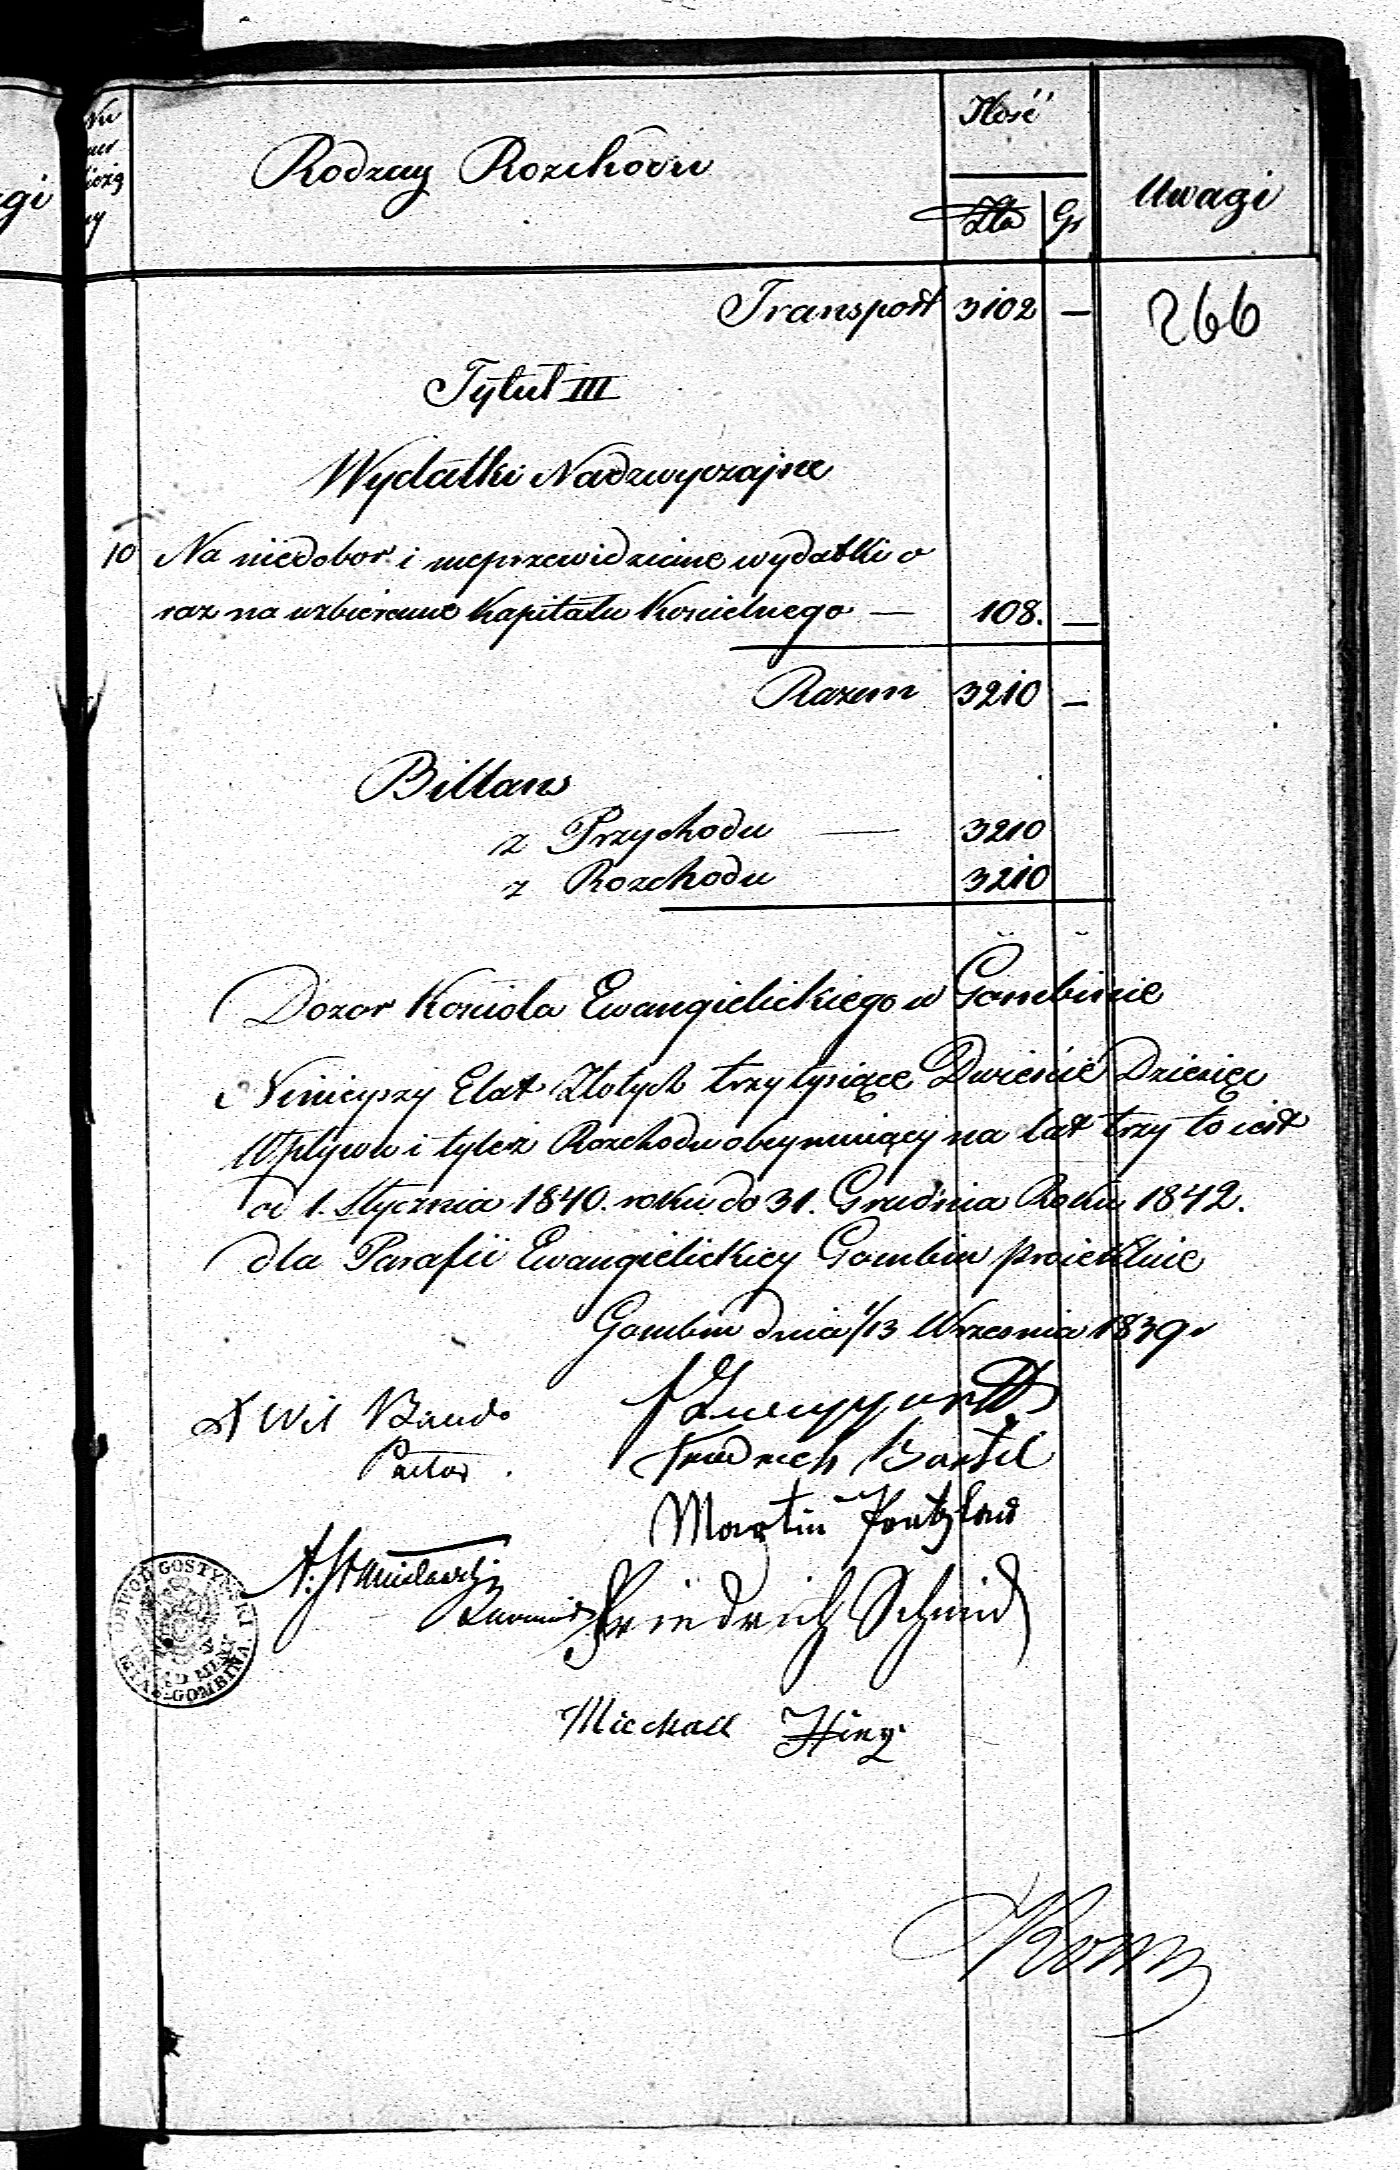 Rodzay Rozchodu
Ilość
Uwagi
Złp Gr
Transport 3102 —
266
Tytuł III
Wydatki Nadzwyczajne
10 Na niedobor i nieprzewidziane wydatki o
raz na uzbieranie Kapitału Koscielnego — 108. —
Razem 3210 —
Billans
z Przychodu — 3210
z Rozchodu 3210
Dozor Kosciola Ewangielickiego w Gombinie
Ninieyszy Etat Złotych trzy tysiące Dwieście Dziesięc
Wpływu i tyleż Rozchodu obeymuiący na lat trzy to iest
od 1. Stycznia 1840. roku do 31. Grudnia Roku 1842.
dla Parafii Ewangielickiey Gombin proiektuie
Gombin dnia 1/13 Wrzesnia 1839 r
Wil
Pastor.
Friedrich Bartel
Martin
Friedrich Schmid
Michael
OBWOD GOSTYNSKI
GOMBINA